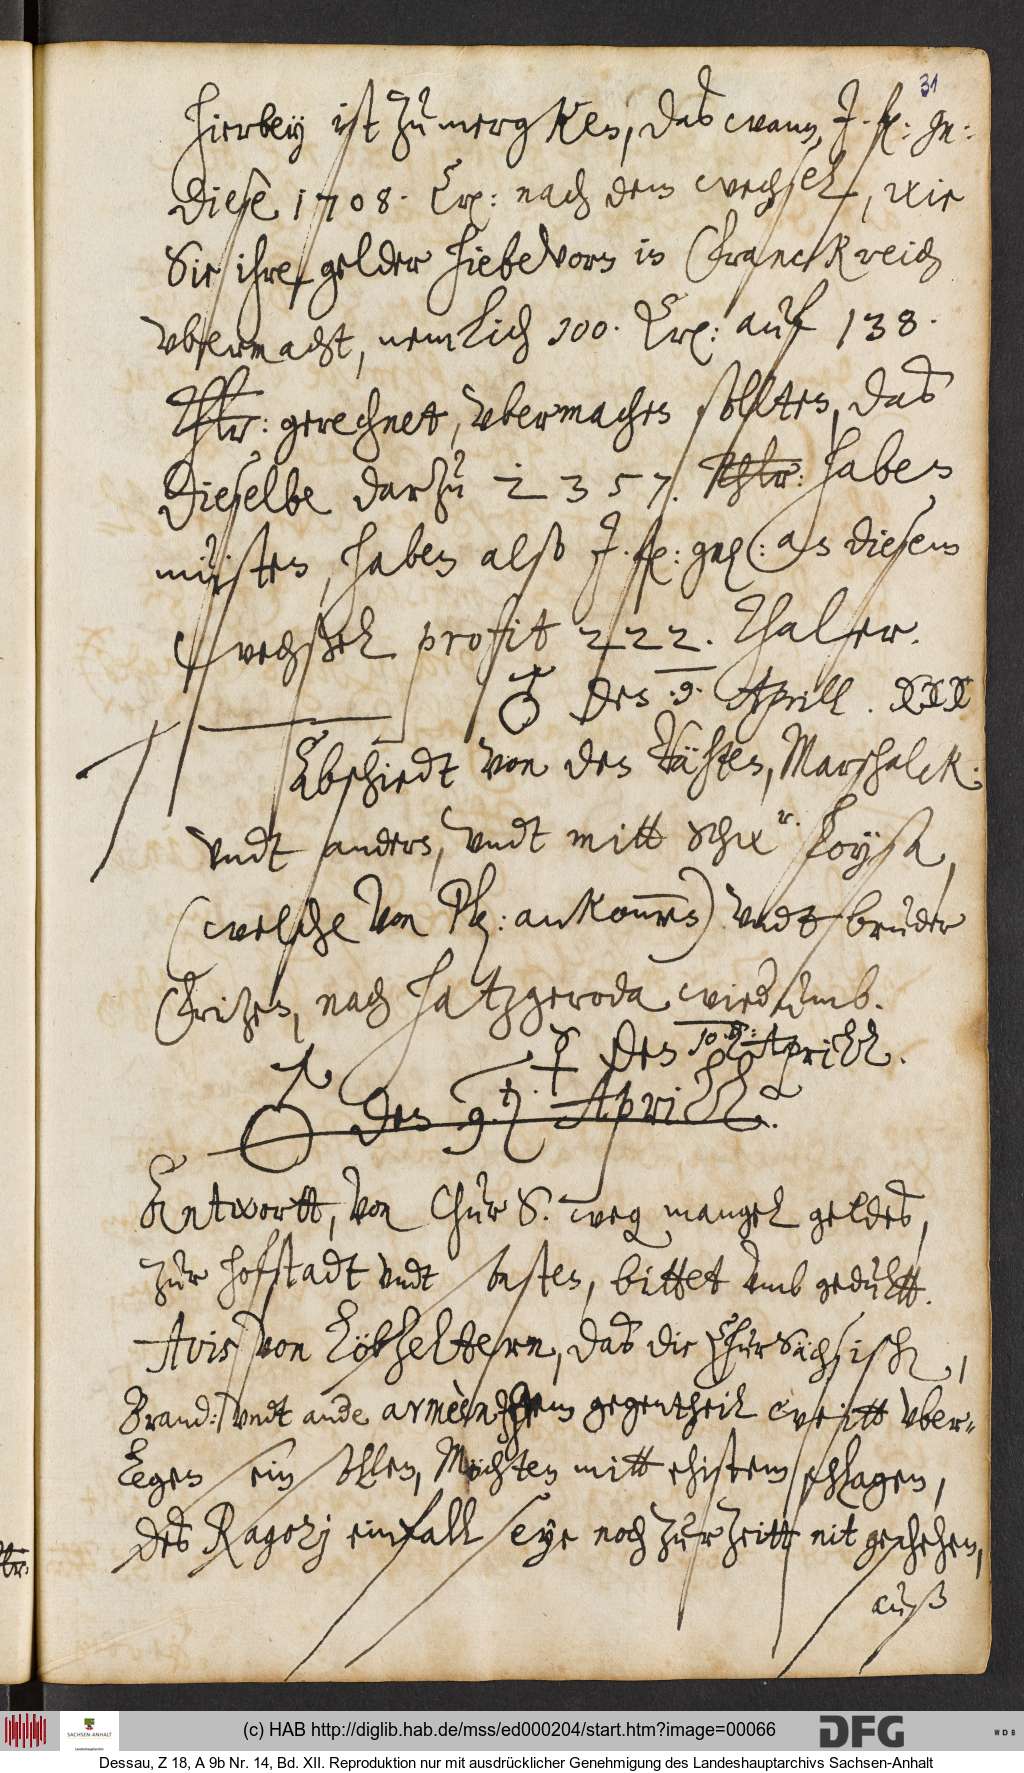 31
Hierbey ist zu mergken, das wann, J. f. gn:
diese 1708. Crß: nach dem wechsel, wie
Sie ihre gelder hiebevorn in Franckreich
vbermacht, nemlich 100. Crß: auf 138.
Thlr: gerechnet, vbermachen sollten, das
dieselbe darzu 2357. Rthlr: haben
müsten, haben also J. f. gn: an diesem
wechßel profit 222. Thaler.
♂ den .9. Aprill. XXX
Abschiedt von den Västen, Marschalck.
vndt andern, vndt mitt Schwr. Loysa,
(welche von Pl: ankommen) vndt bruder
Fritzen, nach Hatzgeroda wiedrumb.
☿ den 10. Aprill.
♂ den 9. Aprill.
Antwortt, von Chur S. weg mangel geldes,
zur hofstadt vndt sonsten, bittet vmb gedultt.
Avis von Löbzeltern, das die ChurSächsisch,
Brand: vndt ande armèen dem gegentheil weitt vber-
legen sein sollen, Möchten mitt ehistem schlagen,
des Ragozj einfall seye noch zur zeitt nit geschehen,
auß
(c) HAB http://diglib.hab.de/mss/ed000204/start.htm?image=00066
SACHSEN-ANHALT
DFG
WDB
Dessau, Z 18, A 9b Nr. 14, Bd. XII. Reproduktion nur mit ausdrücklicher Genehmigung des Landeshauptarchivs Sachsen-Anhalt